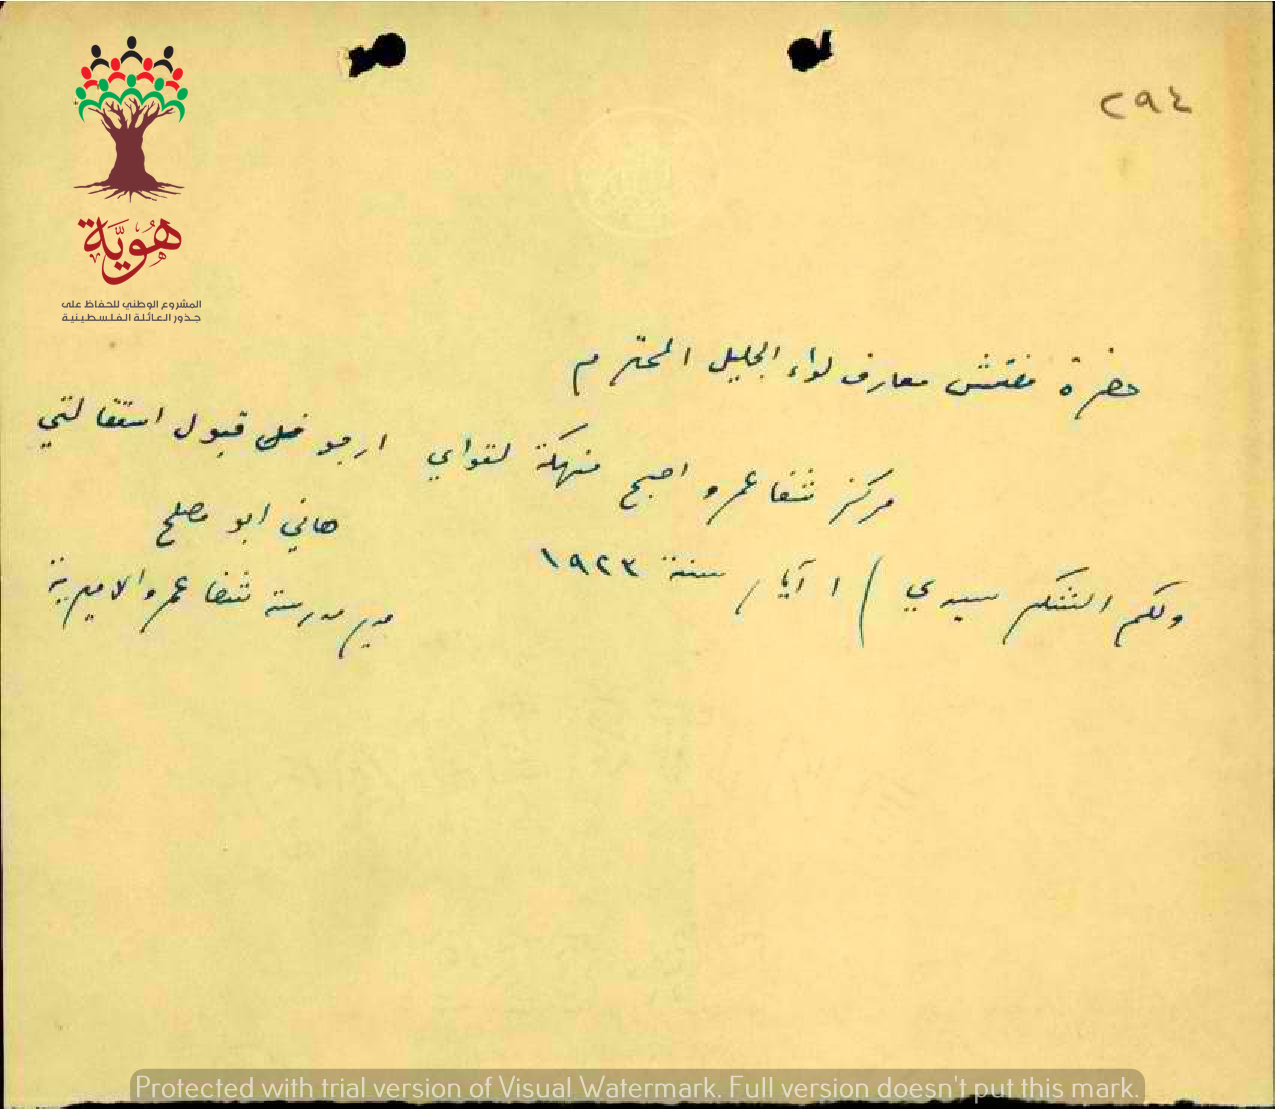 ٢٩٤
هوية
المشروع الوطني للحفاظ على
جذور العائلة الفلسطينية
حضرة مفتش معارف لواء الجليل المحترم
مركز شفا عمرو اصبح منهكة لقواي ارجو قبول استقالتي
ولكم الشكر سيدي ١ آيار سنة ١٩٢٣
هاني ابو مصلح
مدير مدرسة شفا عمرو الاميرية
Protected with trial version of Visual Watermark. Full version doesn't put this mark.